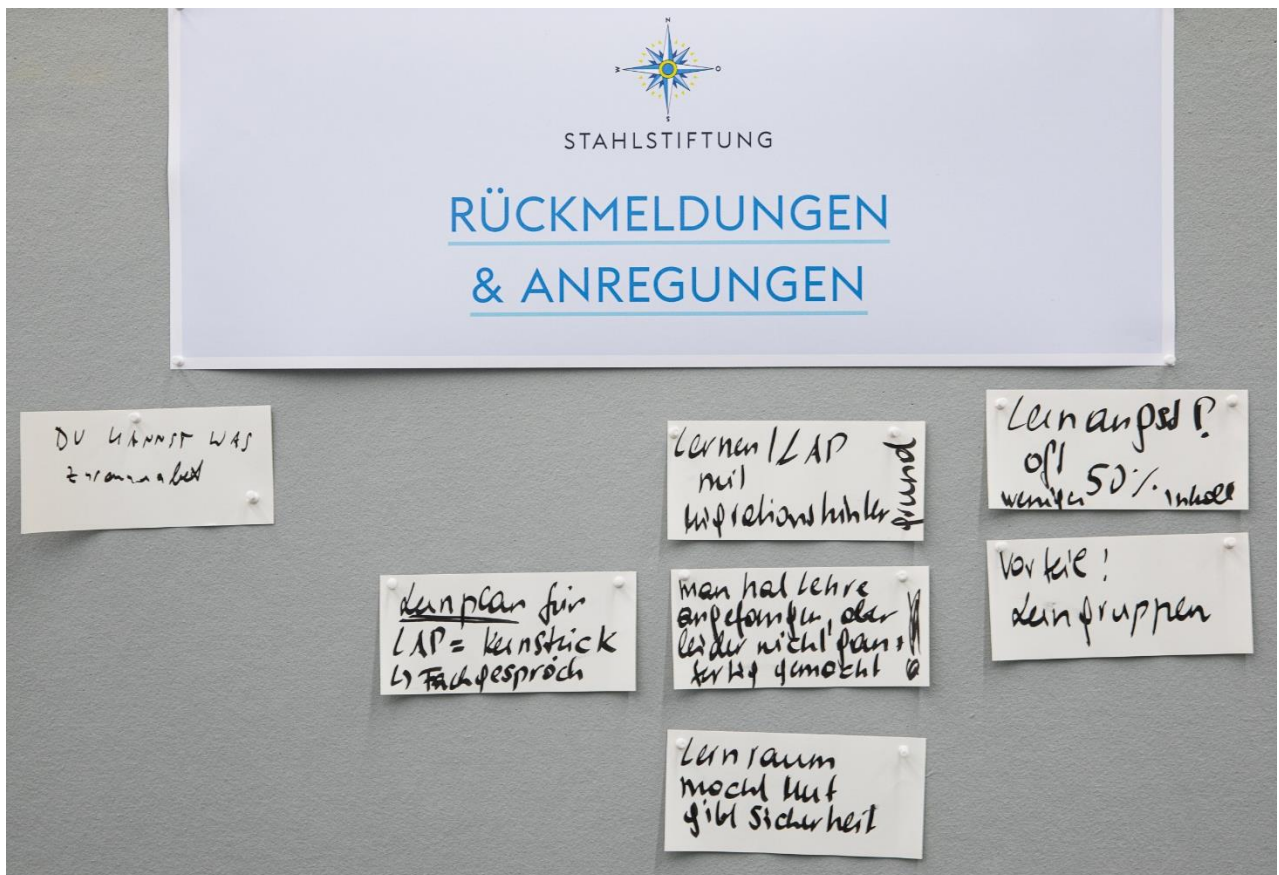 N
W O
S
STAHLSTIFTUNG
RÜCKMELDUNGEN
& ANREGUNGEN
DU KANNST WAS
Lernplan für
LAP = Kernstück
↳ Fachgespräch
Lernen / LAP
mit
Migrationshintergrund
man hat Lehre
angefangen, aber
leider nicht ganz
fertig gemacht
Lernraum
macht Mut
gibt Sicherheit
Lernangst?
oft
weniger 50% Inhalt
Vorteil!
Lerngruppen